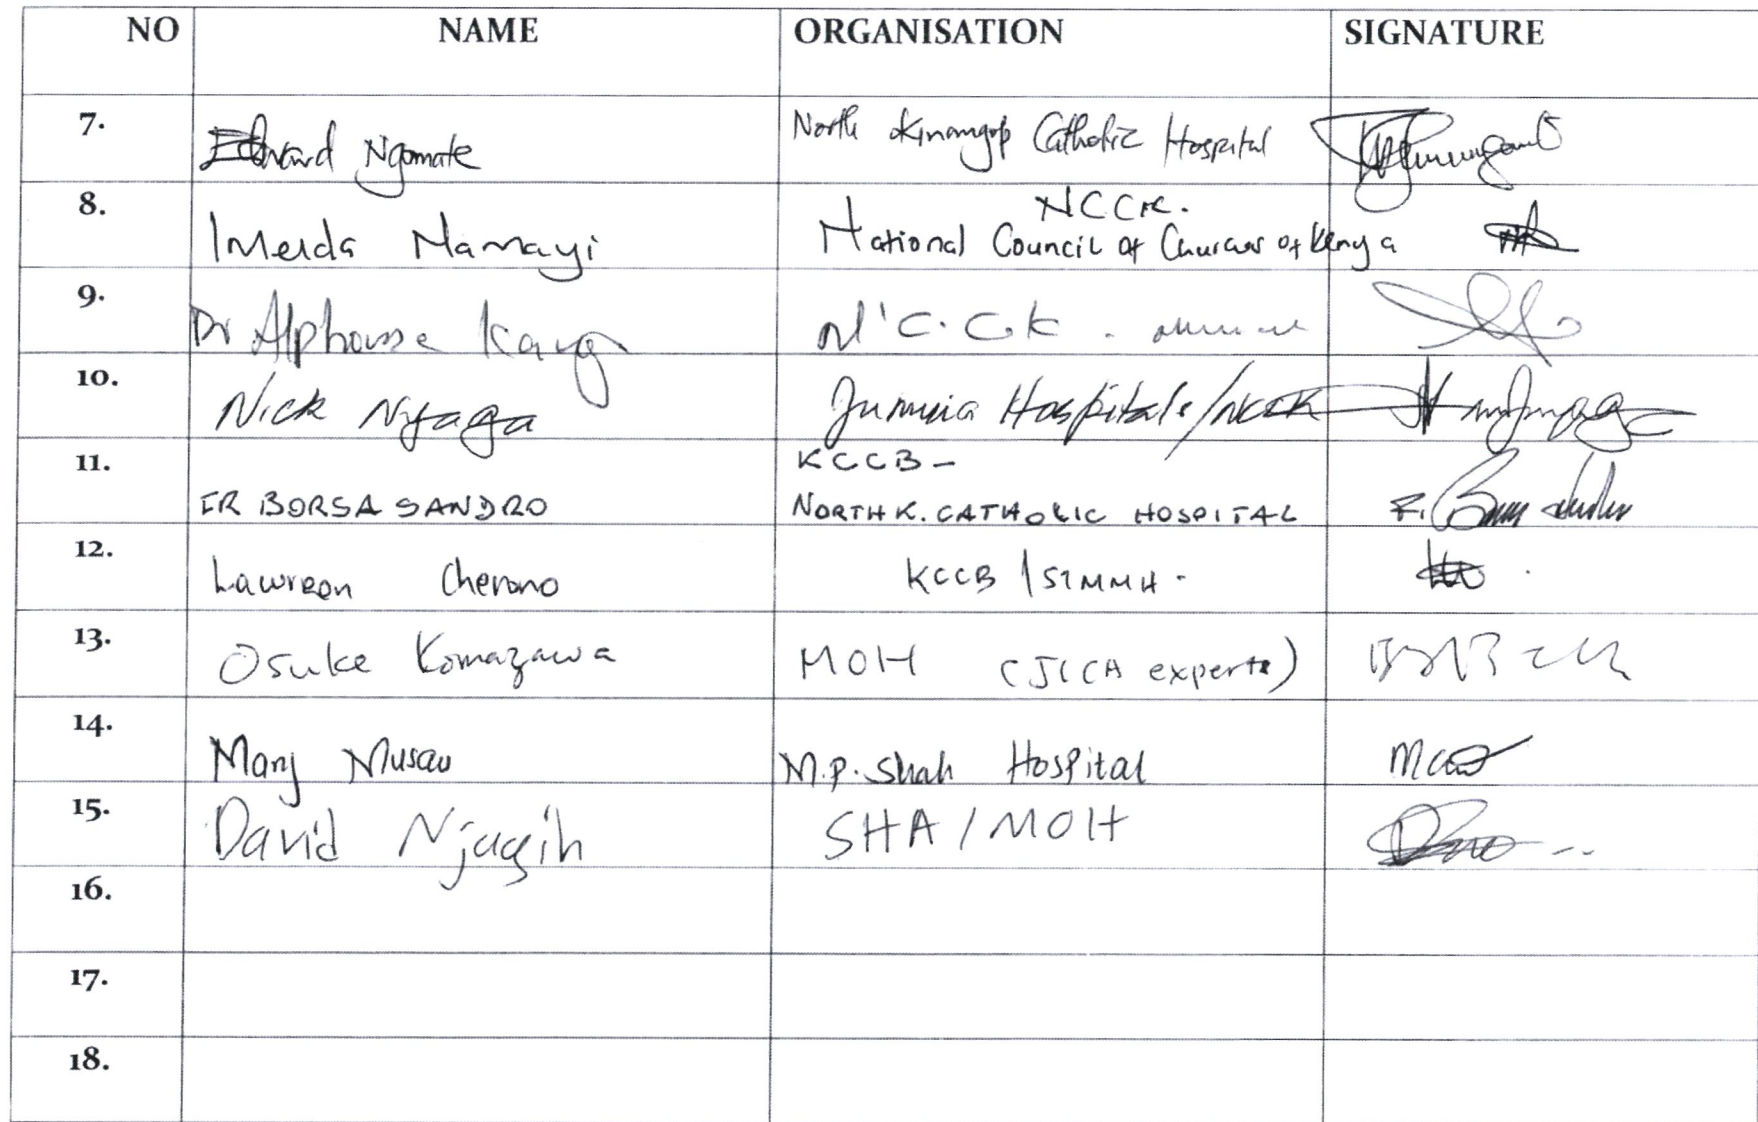 NO NAME ORGANISATION SIGNATURE
7. Edward Ngomate North Kinangop Catholic Hospital
8. Imelda Namayi NCCK.
National Council of Churches of Kenya
9. Dr Alphonse N.C.C.K.
10. Nick Nyaga Jumuia Hospitals/NCCK
11. KCCB -
FR BORSA SANDRO NORTH K. CATHOLIC HOSPITAL
12. Lawreen Cherono KCCB / STMMH.
13. Osuke Komazawa MOH (JICA experts)
14. Mary Musau M.P. Shah Hospital
15. David Njugih SHA / MOH
16.
17.
18.